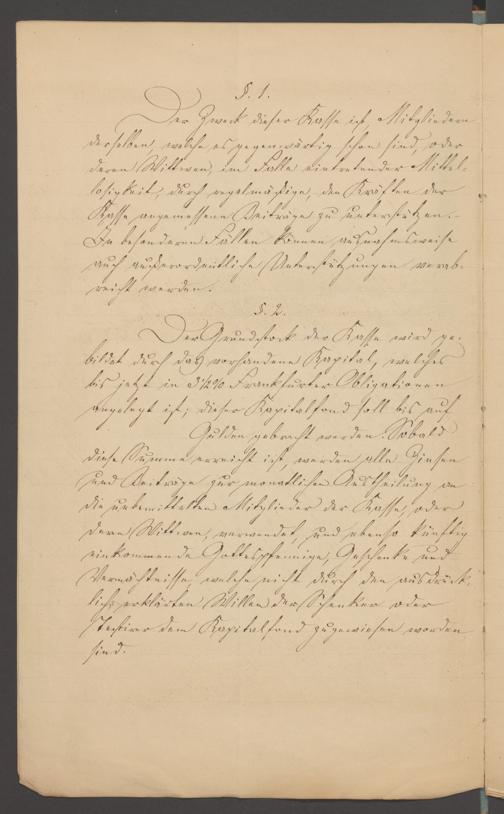 §. 1.
Der Zweck dieser Kasse ist, Mitgliedern
derselben, welche es gegenwärtig schon sind, oder
deren Wittwen, im Falle eintretender Mittel-
losigkeit, durch regelmäßige, den Kräften der
Kasse angemessene Beiträge zu unterstützen.
In besonderen Fällen können ausnahmsweise
auch außerordentliche Unterstützungen verab-
reicht werden.
§. 2.
Der Grundstock der Kasse wird ge-
bildet durch das vorhandene Kapital, welches
bis jetzt in 3½% Frankfurter Obligationen
angelegt ist; dieser Kapitalfond soll bis auf
Gulden gebracht werden. Sobald
diese Summe erreicht ist, werden alle Zinsen
und Beiträge zur monatlichen Austheilung an
die unbemittelten Mitglieder der Kasse, oder
deren Wittwen, verwendet, und ebenso künftig
einkommende Gottespfennige, Geschenke und
Vermächtnisse, welche nicht durch den ausdrück-
lich erklärten Willen der Schenker oder
Testirer dem Kapitalfond zugewiesen worden
sind.